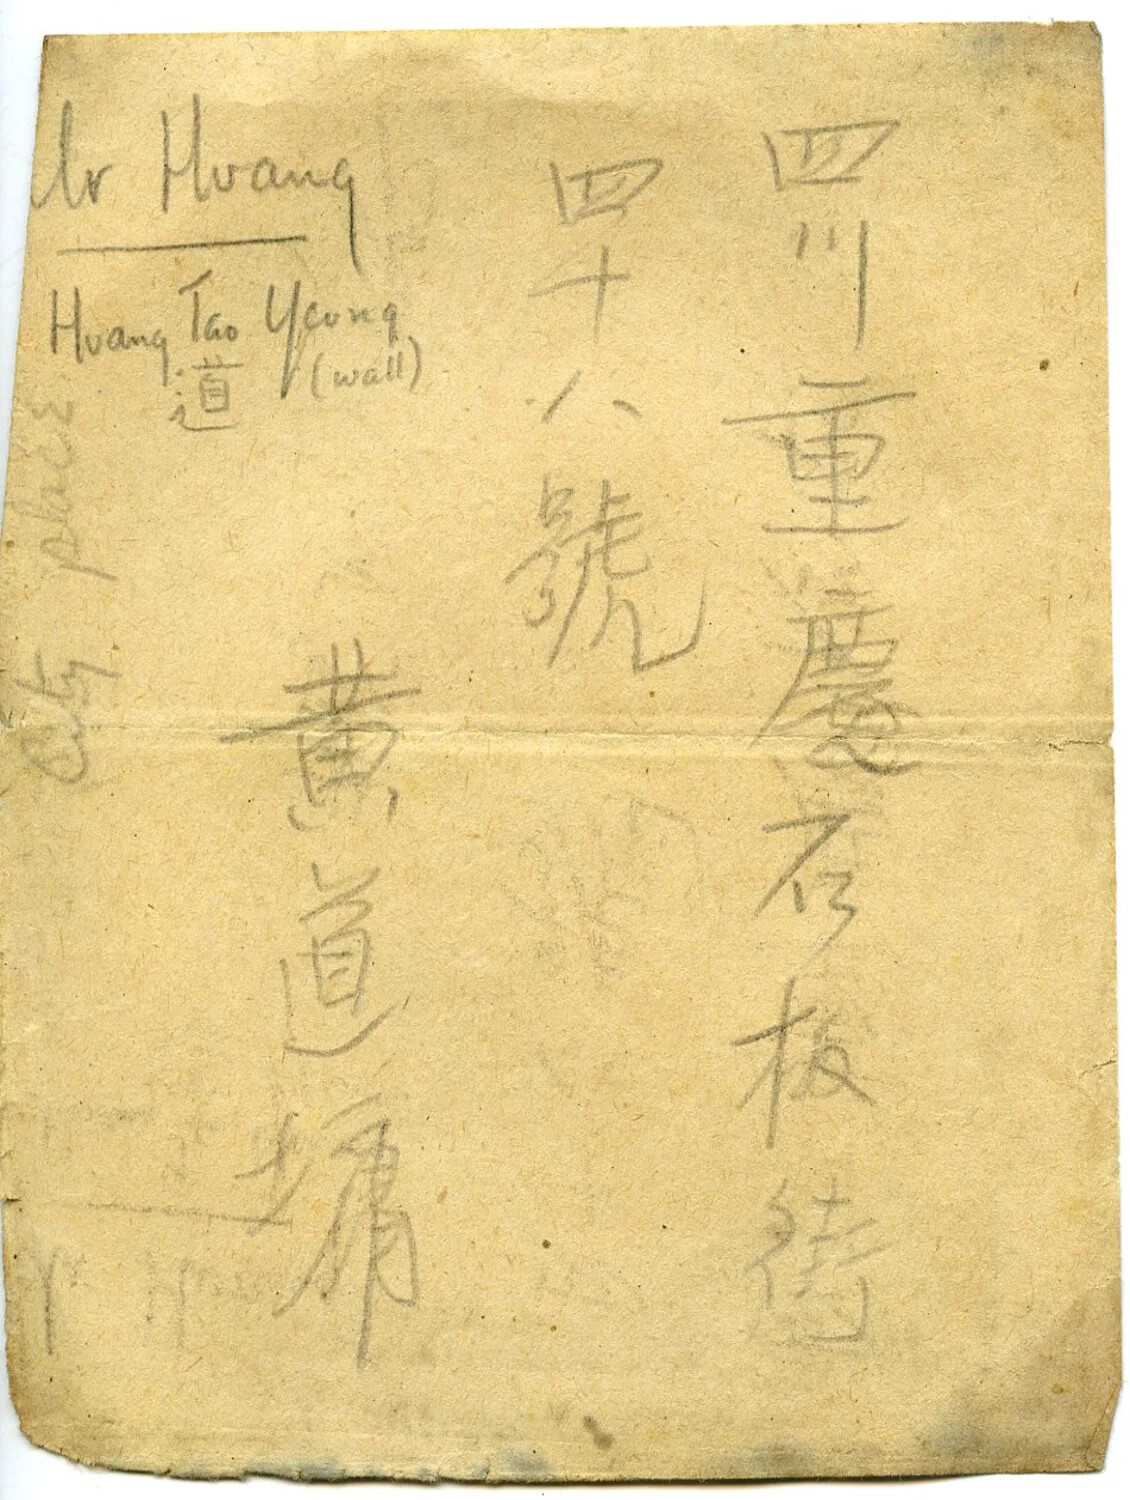 四川重慶石板街
四十八號
黃道墉
Mr Huang
Huang Tao Yeung
道 (wall)
City place